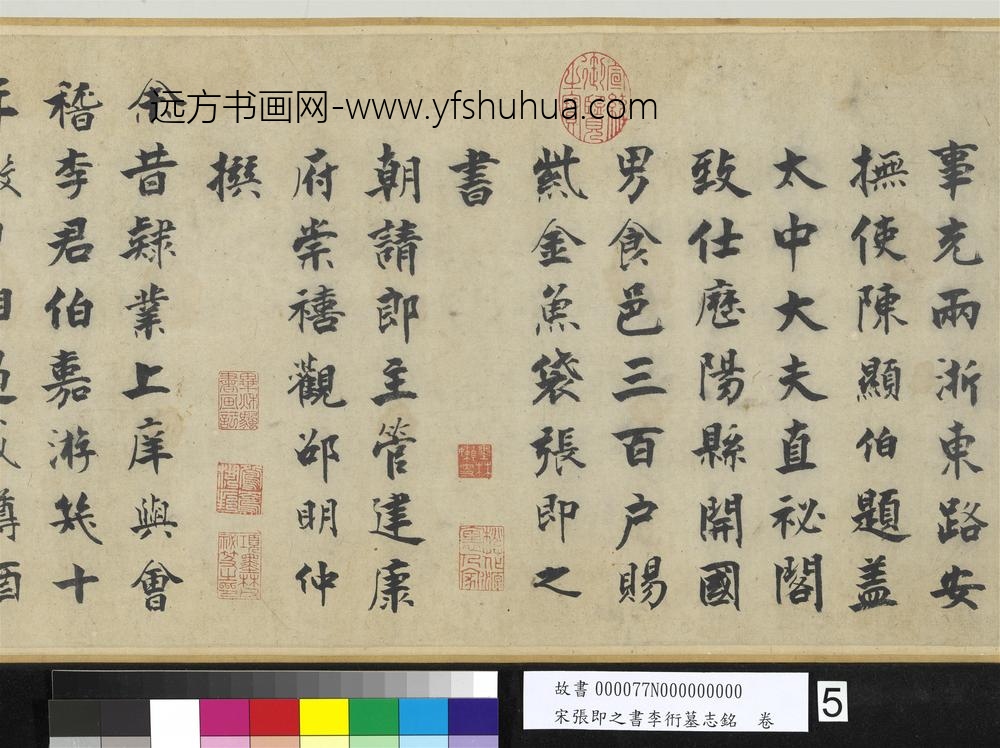 事充兩浙東路安
撫使陳顯伯題蓋
太中大夫直祕閣
致仕歷陽縣開國
男食邑三百户賜
紫金魚袋張即之
書
朝請郎主管建康
府崇禧觀邵明仲
撰
余昔隸業上庠與會
稽李君伯嘉游幾十
远方书画网-www.yfshuhua.com
故書 000077N000000000
宋張即之書李衎墓志銘 卷
5